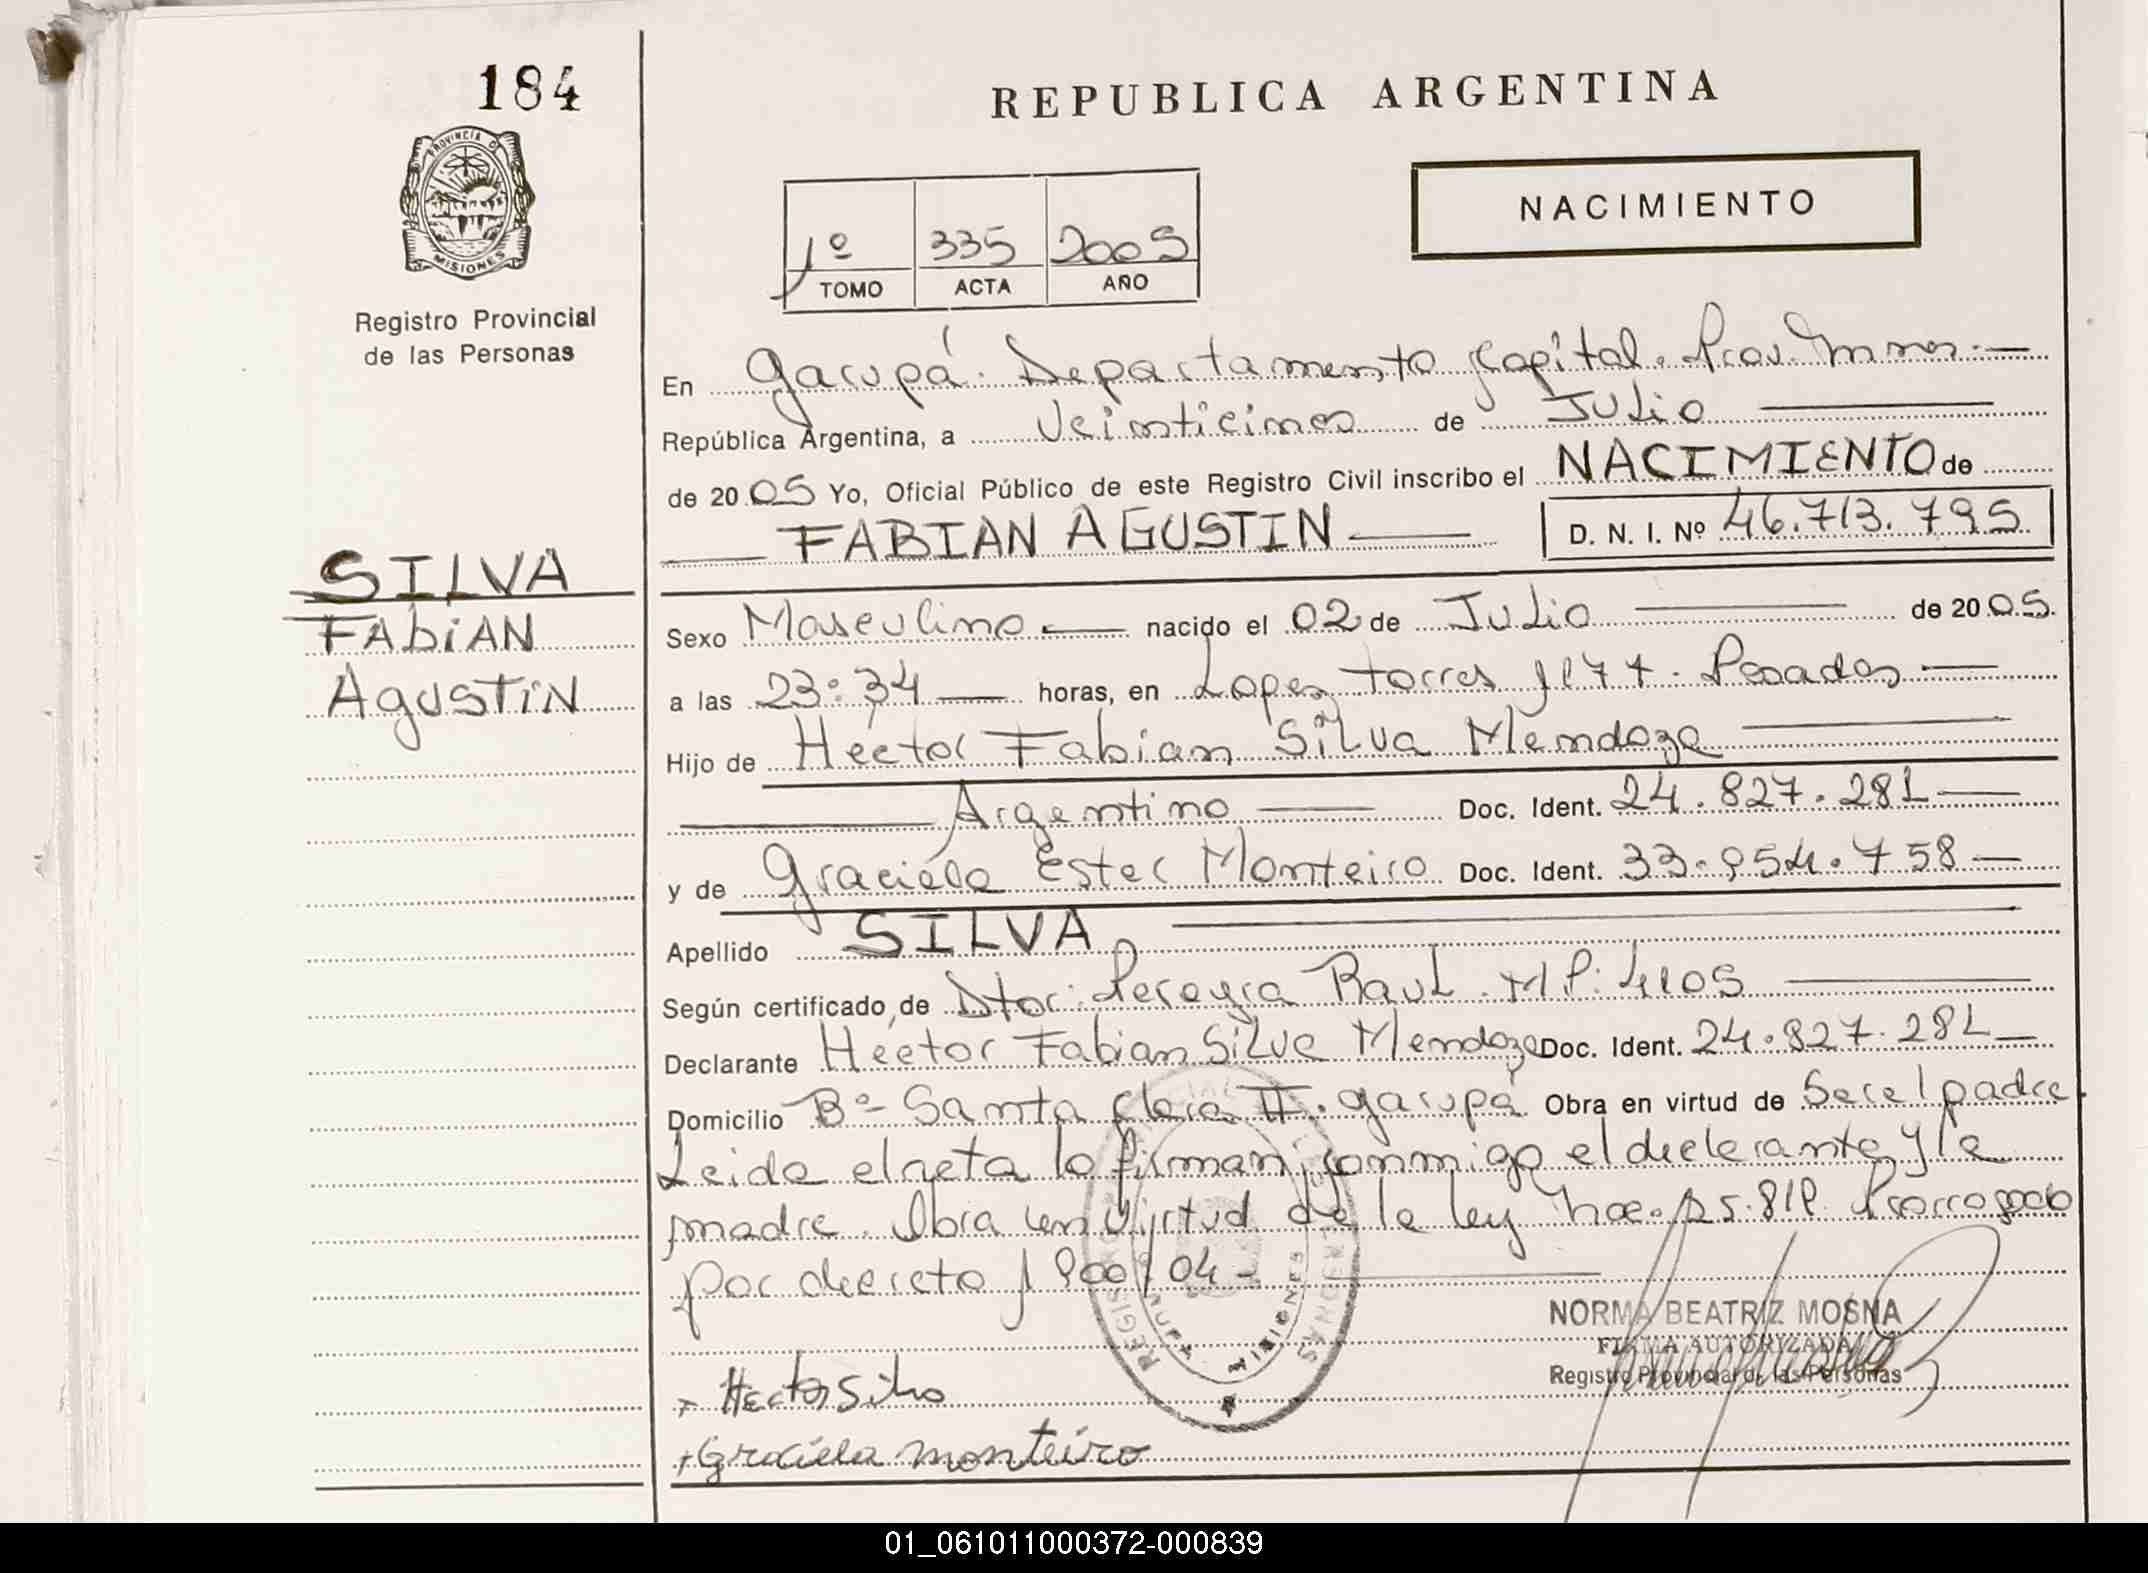 184
REPUBLICA ARGENTINA
PROVINCIA D
MISIONES
NACIMIENTO
1º 335 2005
TOMO ACTA AÑO
Registro Provincial
de las Personas
En Garupá. Departamento Capital. Prov. Mnes.
República Argentina, a Veinticinco de Julio
de 2005 Yo, Oficial Público de este Registro Civil inscribo el NACIMIENTO de
FABIAN AGUSTIN D. N. I. Nº 46.713.795
SILVA
FAbiAN
AgUSTiN
Sexo Masculino nacido el 02 de Julio de 2005.
a las 23:34 horas, en Lopez Torres 1177. Posadas
Hijo de Hector Fabian Silva Mendoza
Argentino Doc. Ident. 24.827.281
y de Graciela Ester Monteiro Doc. Ident. 33.954.758
Apellido SILVA
Según certificado de Dtor: Pereyra Raul. M.P: 4105
Declarante Hector Fabian Silva Mendoza Doc. Ident. 24.827.281
Domicilio Bº Santa Clara II. Garupá Obra en virtud de Ser el padre
Leida el acta la firman conmigo el declarante y la
madre. Obra en virtud de la ley 25.819. Prorrogado
por decreto 900/04-
NORMA BEATRIZ MOSNA
FIRMA AUTORIZADA
Registro Provincial de las Personas
+ Hector Silva
+ Graciela monteiro
01_061011000372-000839